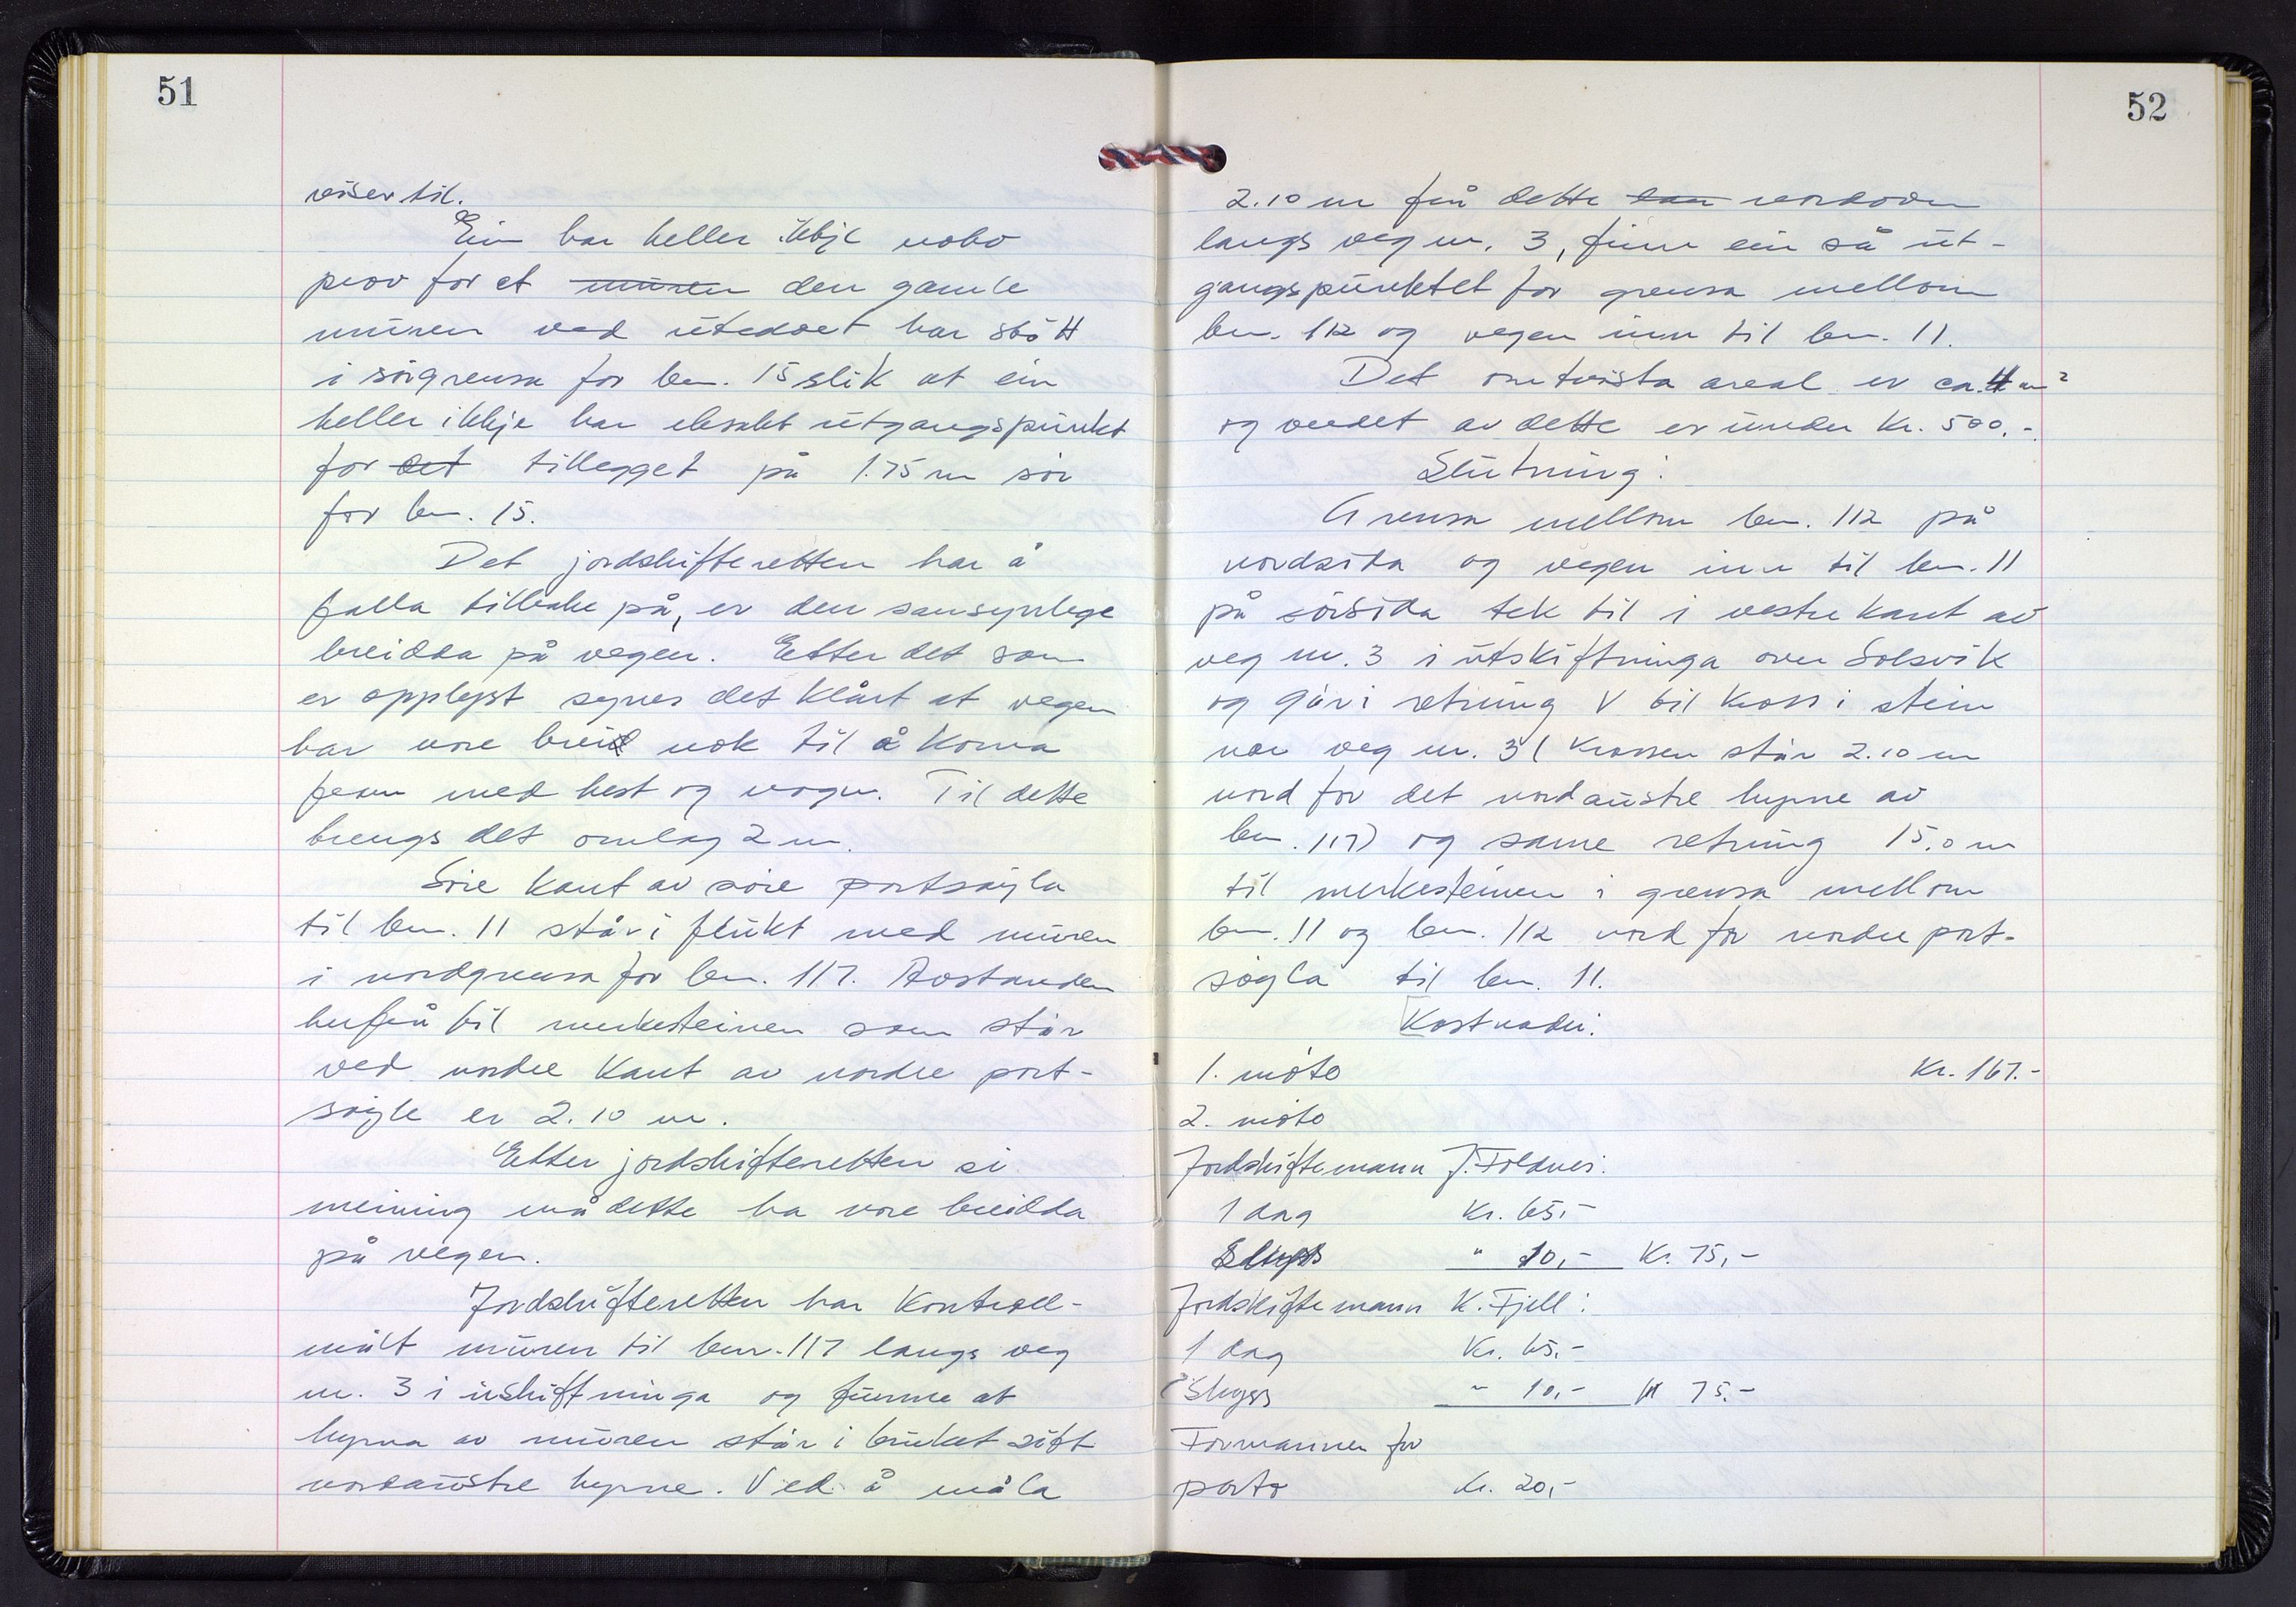 51
viser til.
Ein har heller ikkje noko
prov for at ~~muren~~ den gamle
muren ved utedoet har stått
i sørgrensa for bnr. 15 slik at ein
heller ikkje har eksakt utgangspunkt
for ~~det~~ tillegget på 1.75 m sør
for bnr. 15.
Det jordskifteretten har å
falla tilbake på, er den sansynlege
breidda på vegen. Etter det som
er opplyst synes det klårt at vegen
har vore brei nok til å koma
fram med hest og vogn. Til dette
trengs det omlag 2 m.
Søre kant av søre portsøyla
til bnr. 11 står i flukt med muren
i nordgrensa for bnr. 117. Avstanden
herfrå til merkesteinen som står
ved nordre kant av nordre port-
søyle er 2.10 m.
Etter jordskifteretten si
meining må dette ha vore breidda
på vegen.
Jordskifteretten har kontroll-
målt muren til bnr. 117 langs veg
nr. 3 i uskiftninga og funne at
hyrna av muren står i bruket sitt
nordaustre hyrne. Ved å måla
52
2.10 m frå dette nordover
langs veg nr. 3, finn ein så ut-
gangspunktet for grensa mellom
bnr. 112 og vegen inn til bnr. 11.
Det omtvista areal er ca. m²
og verdet av dette er under kr. 500.-
Slutning:
Grensa mellom bnr. 112 på
nordsida og vegen inn til bnr. 11
på sørsida tek til i vestre kant av
veg nr. 3 i utskiftninga over Solsvik
og går i retning V til kross i stein
nær veg nr. 3 (krossen står 2.10 m
nord for det nordaustre hyrne av
bnr. 117) og same retning 15.0 m
til merkesteinen i grensa mellom
bnr. 11 og bnr. 112 nord for nordre port-
søyla til bnr. 11.
Kostnader:
1. møte Kr. 167.-
2. møte
Jordskiftemann J. Foldnes:
1 dag Kr. 65.-
Skyss " 10,- Kr. 75,-
Jordskiftemann K. Fjell:
1 dag Kr. 65.-
Skyss " 10,- " 75.-
Formannen for
porto kr. 20,-